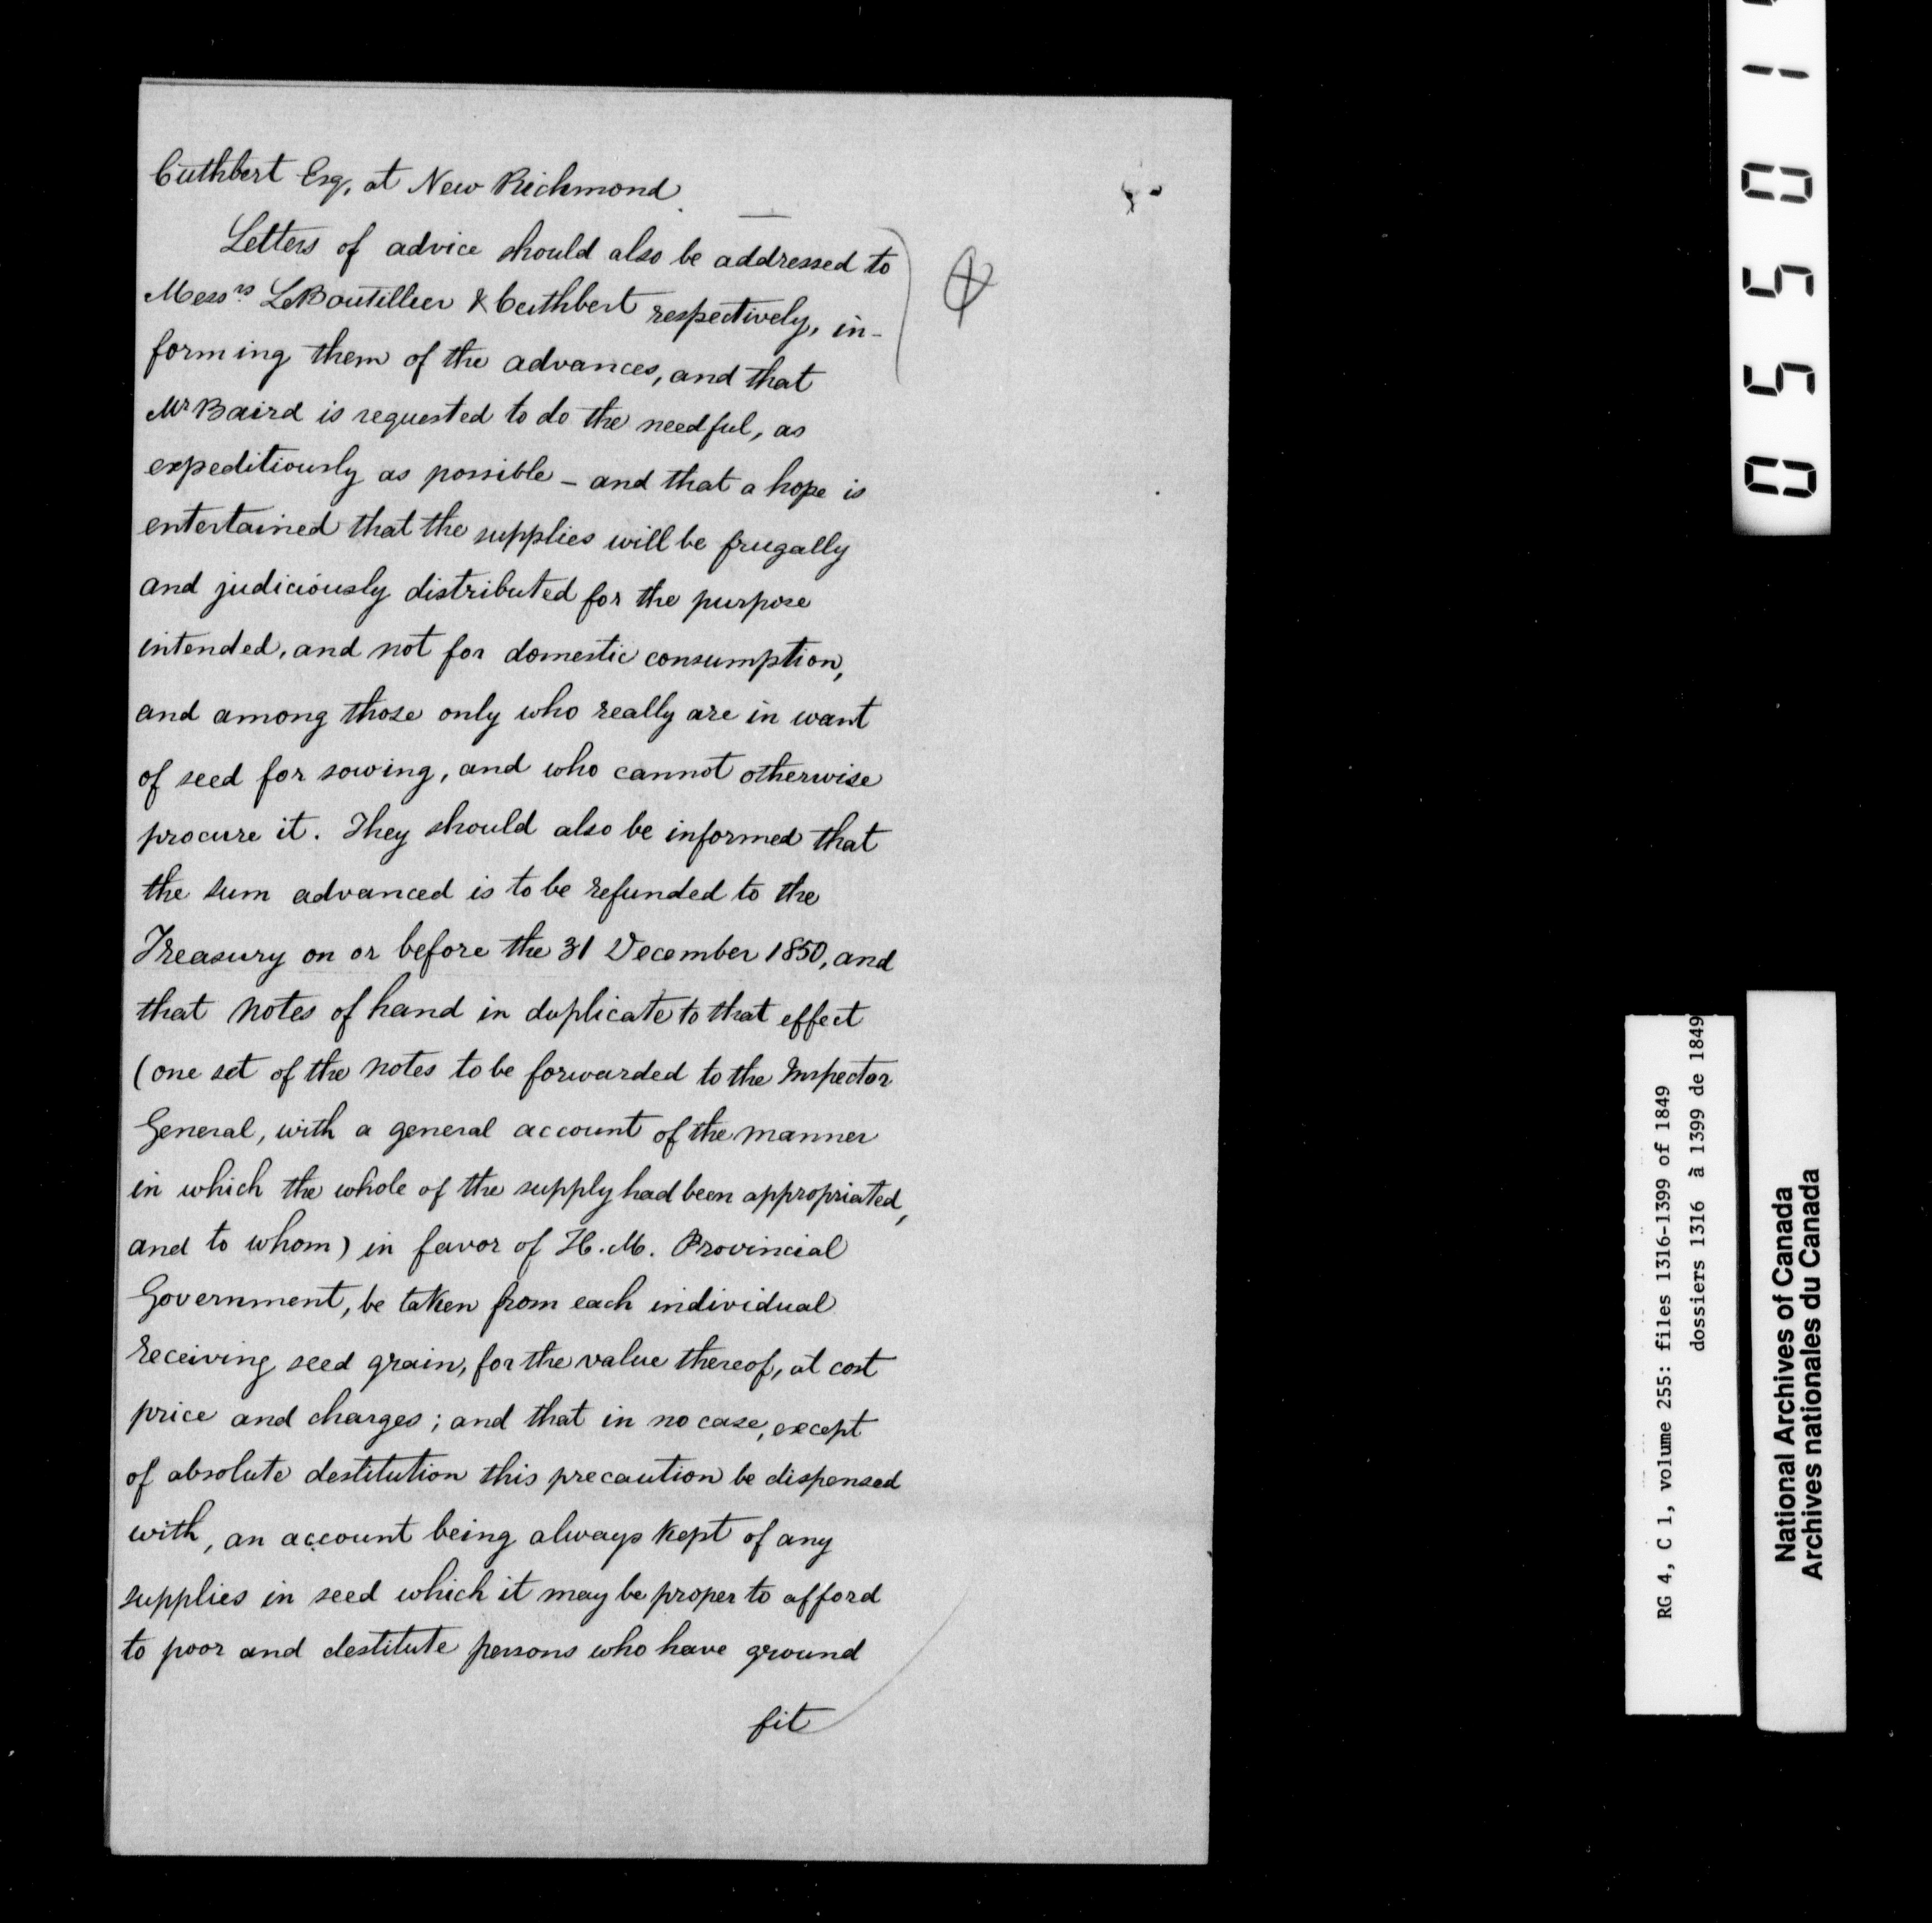 Cuthbert Esq, at New Richmond.
Letters of advice should also be addressed to
Messrs LeBoutillier & Cuthbert respectively, in-
forming them of the advances, and that
Mr Baird is requested to do the needful, as
expeditiously as possible – and that a hope is
entertained that the supplies will be frugally
and judiciously distributed for the purpose
intended, and not for domestic consumption,
and among those only who really are in want
of seed for sowing, and who cannot otherwise
procure it. They should also be informed that
the sum advanced is to be refunded to the
Treasury on or before the 31 December 1850, and
that notes of hand in duplicate to that effect
(one set of the notes to be forwarded to the Inspector
General, with a general account of the manner
in which the whole of the supply had been appropriated,
and to whom) in favor of H. M. Provincial
Government, be taken from each individual
receiving seed grain, for the value thereof, at cost
price and charges; and that in no case, except
of absolute destitution this precaution be dispensed
with, an account being always kept of any
supplies in seed which it may be proper to afford
to poor and destitute persons who have ground
fit
05501
RG 4, C 1, volume 255: files 1316-1399 of 1849
dossiers 1316 à 1399 de 1849
National Archives of Canada
Archives nationales du Canada